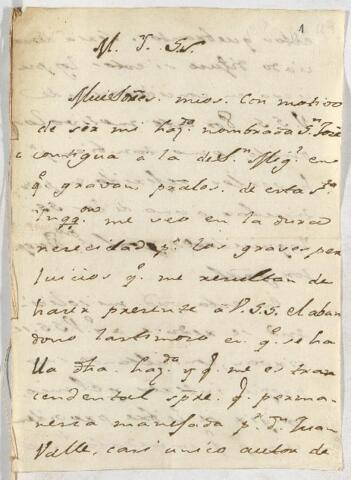 1
M. Y. SS
Mui Señs. mios. Con motivo
de ser mi hazda. nombrada Sn. José
contigua á la de Sn. Migl. en
q. gravan prales. de esta Sta.
Ingqon. me veo en la dura
necesidad pr. los graves per
juicios q. me resultan de
hacer presente á V.SS. el aban
dono lastimoso en q. se ha
lla dha. hazda. y q. me es tras
cendental spre. q. perma
nesca manejada pr. Dn. Juan
Valle, casi unico autor de